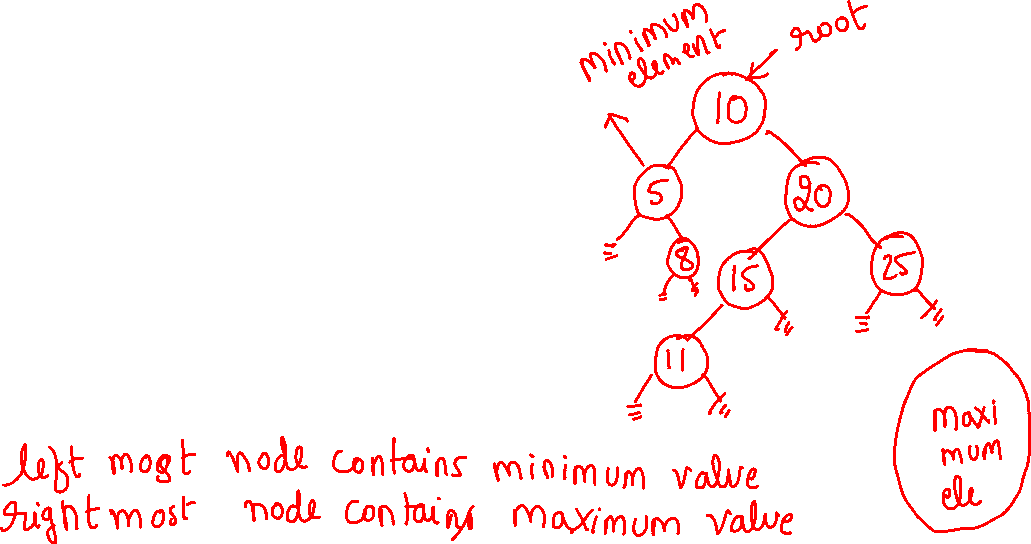 root
minimum
element
10
5
20
8
15
25
11
maxi
mum
ele
left most node contains minimum value
right most node contains maximum value